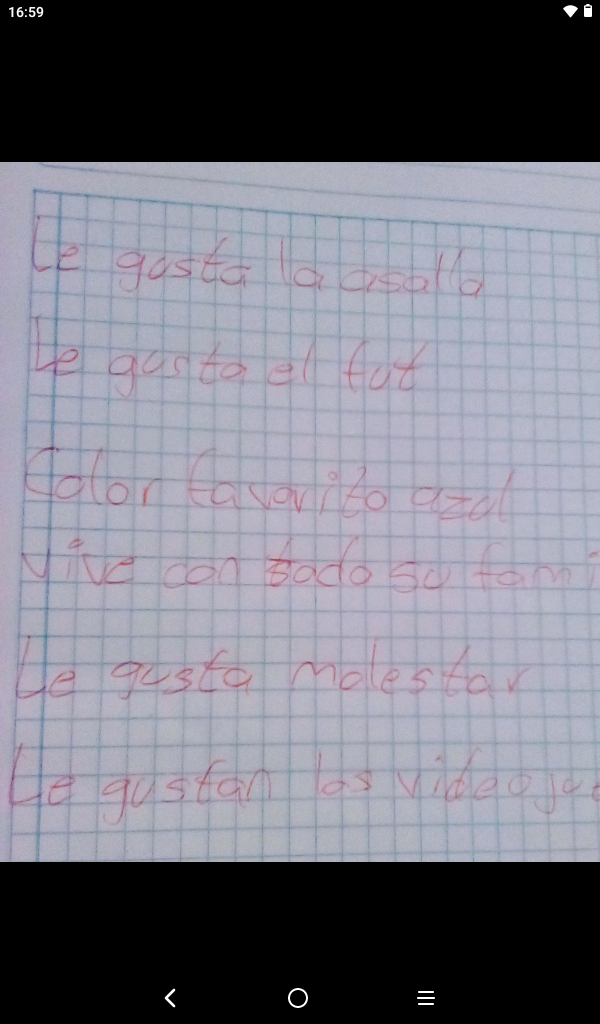 16:59
Le gusta la asalla
Le gusta el fut
Color favorito azul
Vive con todo su fami
Le gusta molestar
Le gustan los videoju